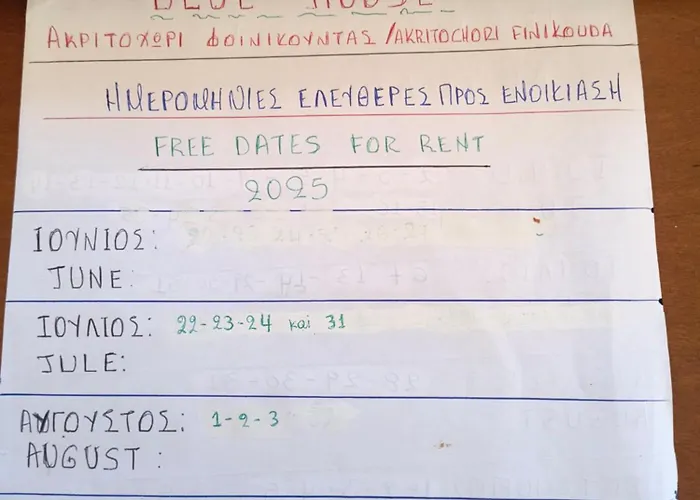 ΑΚΡΙΤΟΧΩΡΙ ΦΟΙΝΙΚΟΥΝΤΑΣ /AKRITOCHORI FINIKOUDA
ΗΜΕΡΟΜΗΝΙΕΣ ΕΛΕΥΘΕΡΕΣ ΠΡΟΣ ΕΝΟΙΚΙΑΣΗ
FREE DATES FOR RENT
2025
ΙΟΥΝΙΟΣ:
JUNE:
ΙΟΥΛΙΟΣ: 22-23-24 καί 31
JULE:
ΑΥΓΟΥΣΤΟΣ: 1-2-3
AUGUST :